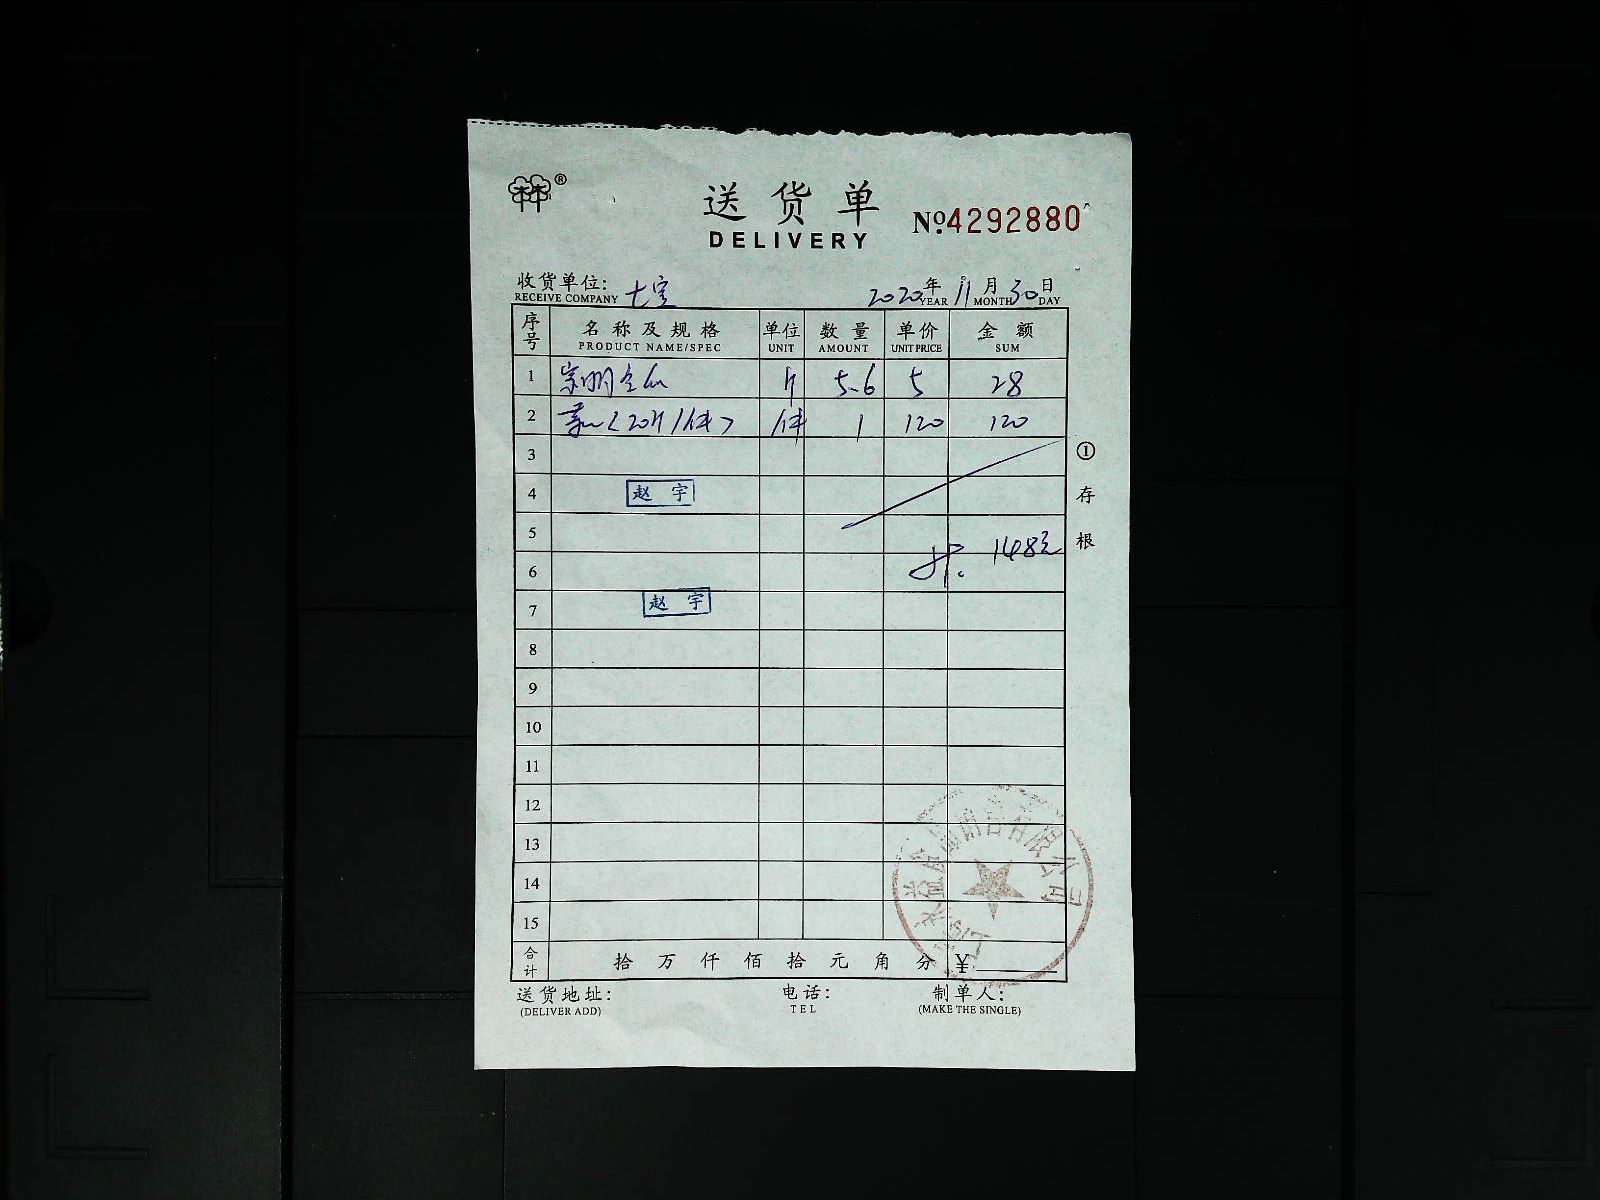 ®
送货单
DELIVERY
№:4292880
收货单位: 七宝
RECEIVE COMPANY
2020年11月30日
YEAR MONTH DAY
序号 名称及规格 单位 数量 单价 金额
PRODUCT NAME/SPEC UNIT AMOUNT UNIT PRICE SUM
1 5.6 5 28
2 件 1 120 120
3
4 赵宇
5
6 共. 148元
7 赵宇
8
9
10
11
12
13
14
15
①存根
食品销售有限公司
合计 拾万仟佰拾元角分 ¥
送货地址: 电话: 制单人:
(DELIVER ADD) TEL (MAKE THE SINGLE)